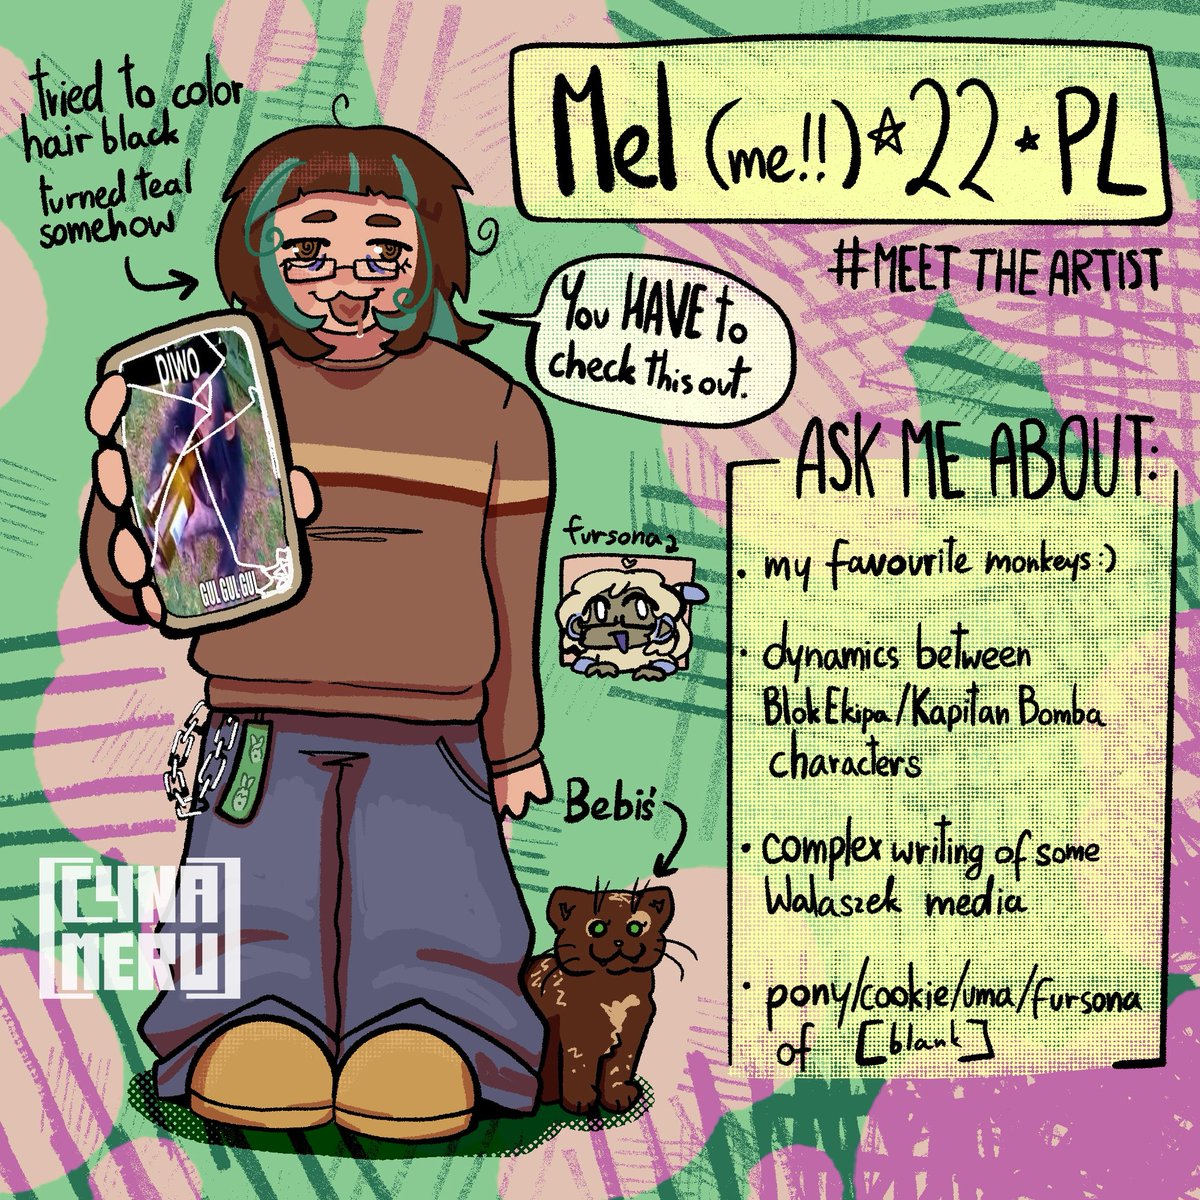 tried to color
hair black
turned teal
somehow
Mel (me!!) ☆ 22 ★ PL
#MEET THE ARTIST
You HAVE to
check this out.
piwo
GUL GUL GUL
fursona
ASK ME ABOUT:
• my favourite monkeys:)
• dynamics between
Blok Ekipa/Kapitan Bomba
characters
• complex writing of some
Walaszek media
• pony/cookie/uma/fursona
of [blank]
Bebiś
CYNA
MERU